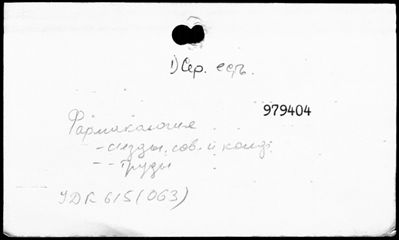 1) Сер. есть.
979404
Фармакология
- съезды, сов. и конф.
- - Труды
УДК 615(063)